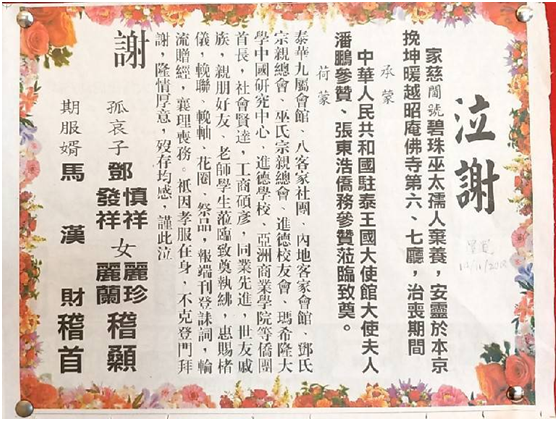 泣謝
家慈閫號碧珠巫太孺人棄養,安靈於本京
挽坤暖越昭庵佛寺第六、七廳,治喪期間
承蒙
中華人民共和國駐泰王國大使館大使夫人
潘鵬參贊、張東浩僑務參贊蒞臨致奠。
荷蒙
泰華九屬會館、八客家社團、內地客家會館、鄧氏
宗親總會、巫氏宗親總會、進德校友會、瑪希隆大
學中國研究中心、進德學校、亞洲商業學院等僑團
首長,社會賢達,工商碩彥,同業先進,世友戚
族,親朋好友、老師學生蒞臨致奠執紼,惠賜楮
儀,輓聯、輓軸、花圈、祭品,報端刊登誄詞,輪
流贈經,襄理喪務。祇因孝服在身,不克登門拜
謝,隆情厚意,歿存均感,謹此泣
謝
孤哀子鄧慎祥 女麗珍稽顙
發祥 麗蘭
期服婿馬漢財稽首